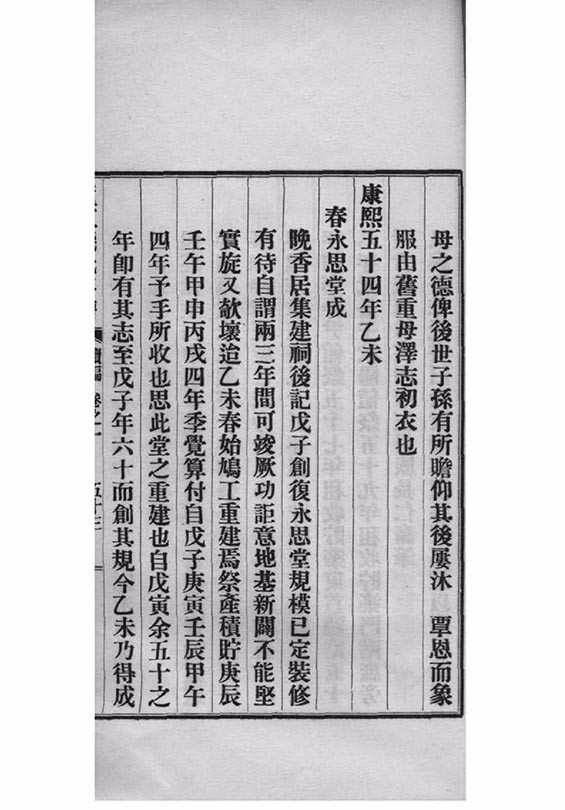 母之德俾後世子孫有所瞻仰其後屢沐 覃恩而象
服由舊重母澤志初衣也
康熙五十四年乙未
春永思堂成
晚香居集建祠後記戊子創復永思堂規模已定裝修
有待自謂兩三年間可竣厥功詎意地基新闢不能堅
實旋又欹壞迨乙未春始鳩工重建焉祭產積貯庚辰
壬午甲申丙戌四年季覺算付自戊子庚寅壬辰甲午
四年予手所收也思此堂之重建也自戊寅余五十之
年卽有其志至戊子年六十而創其規今乙未乃得成
續編 卷之一 五十三